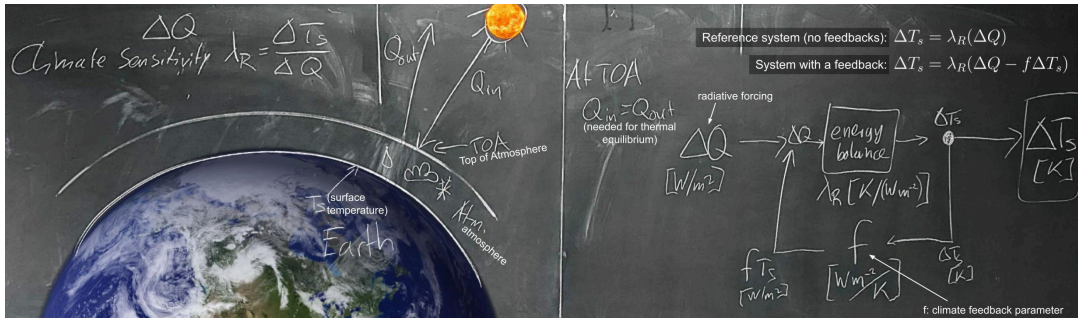 ΔQ
Climate Sensitivity λR = ΔTs / ΔQ
Qout
Qin
TOA
Top of Atmosphere
Ts
(surface
temperature)
Atm.
atmosphere
Earth
At TOA
Qin = Qout
(needed for thermal
equilibrium)
Reference system (no feedbacks): ΔTs = λR(ΔQ)
System with a feedback: ΔTs = λR(ΔQ − fΔTs)
radiative forcing
ΔQ
[W/m²]
ΔQ
energy
balance
λR [K/(Wm⁻²)]
ΔTs
ΔTs
[K]
f Ts
[W/m²]
f
[Wm⁻²/K]
ΔTs
[K]
f: climate feedback parameter